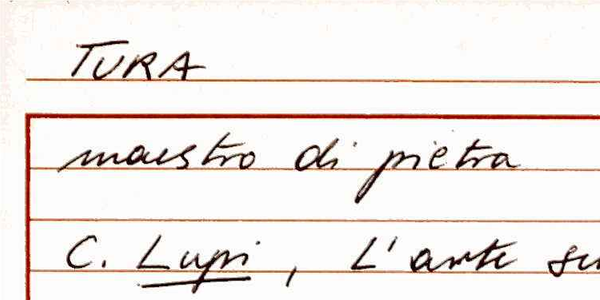 TURA
maestro di pietra
C. Lupi, L'arte